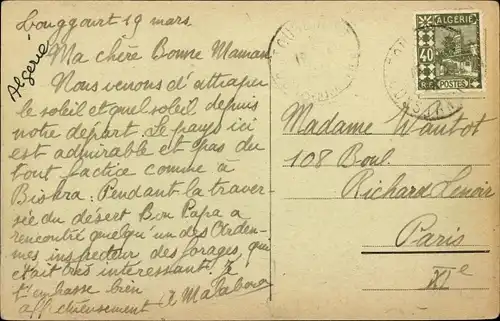 Touggourt 19 mars.
Algérie
Ma chère Bonne Maman
Nous venons d'attraper
le soleil et quel soleil depuis
notre départ. Le pays ici
est admirable et pas du
tout factice comme à
Biskra. Pendant la traver-
sée du désert Bon Papa a
rencontré quelqu'un des Arden-
nes inspecteur des forages, qui
était très intéressant. Je
t'embrasse bien
affectueusement
ALGÉRIE
40
POSTES
Madame
108 Boul.
Richard Lenoir
Paris
XIe